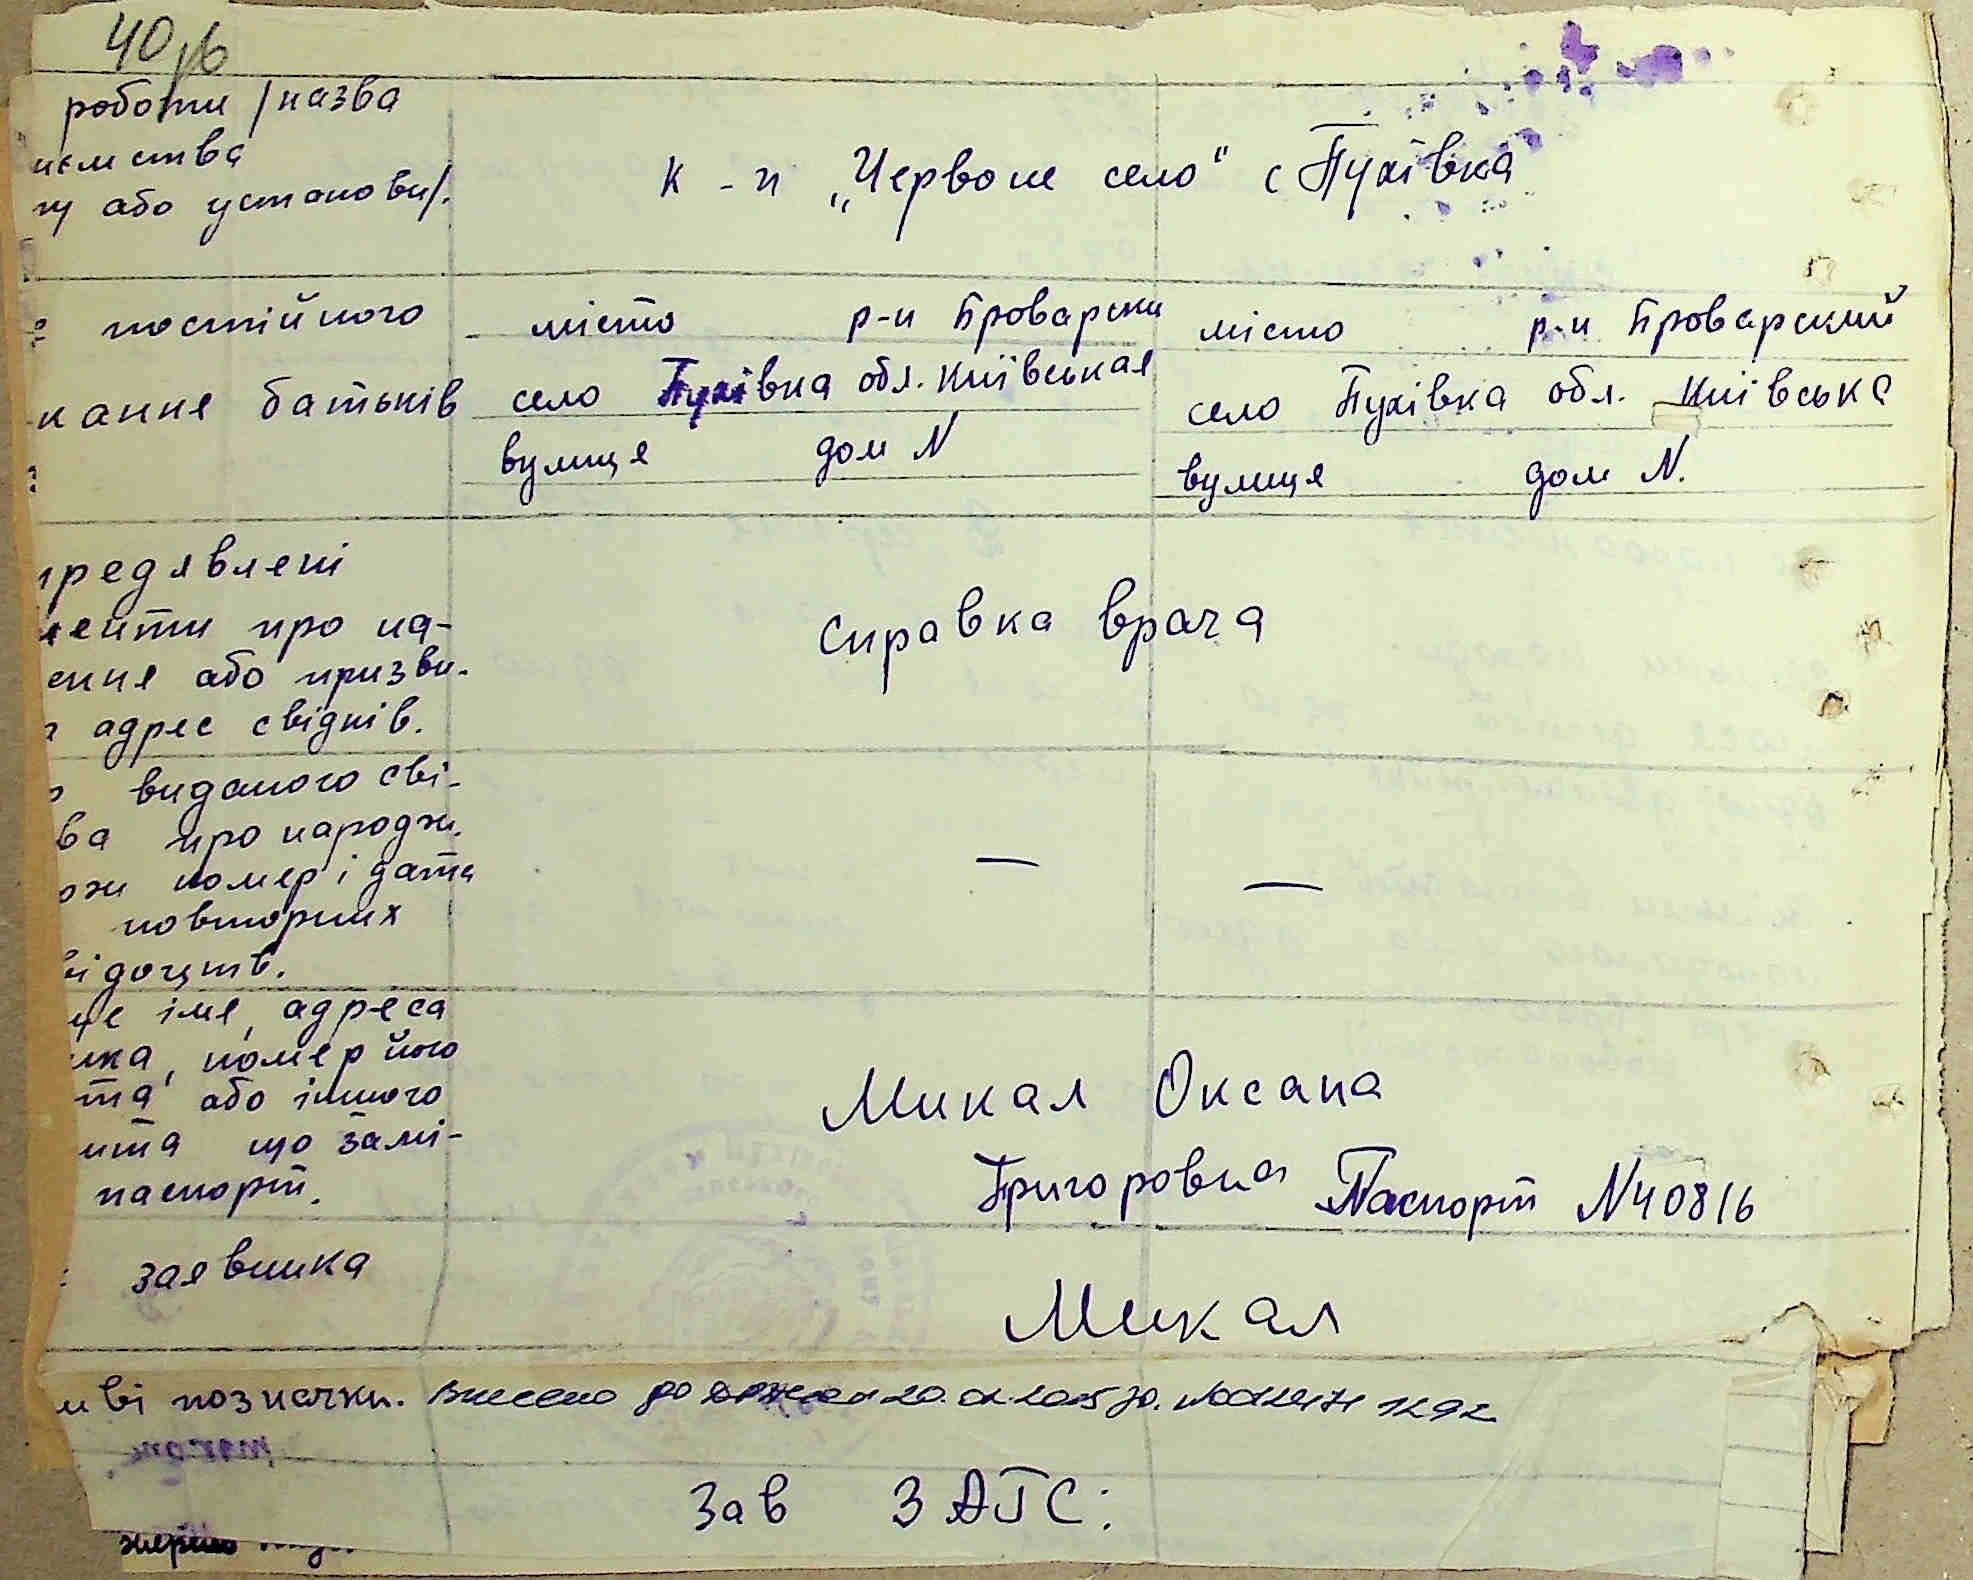 40 рб
роботи /назва
иємства
гу або установи/.
к-п „Червоне село" с Пухівка
постійного
кання батьків
місто р-н Броварски
село Пухівка обл. Київськая
вулиця дом N
місто р-н Броварский
село Пухівка обл. Київська
вулиця дом N.
предявлені
менти про на-
ення або призви-
а адрес свідків.
справка врача
виданого сві-
ва про народж.
ожи номер і дата
повторних
відоцтв.
— —
ще імя, адреса
ика, номер його
та або іншого
нта що замі-
паспорт.
Микал Оксана
Григоровна Паспорт N40816
заявника
Микал
иві позначки. Внесено до
Зав ЗАГС: